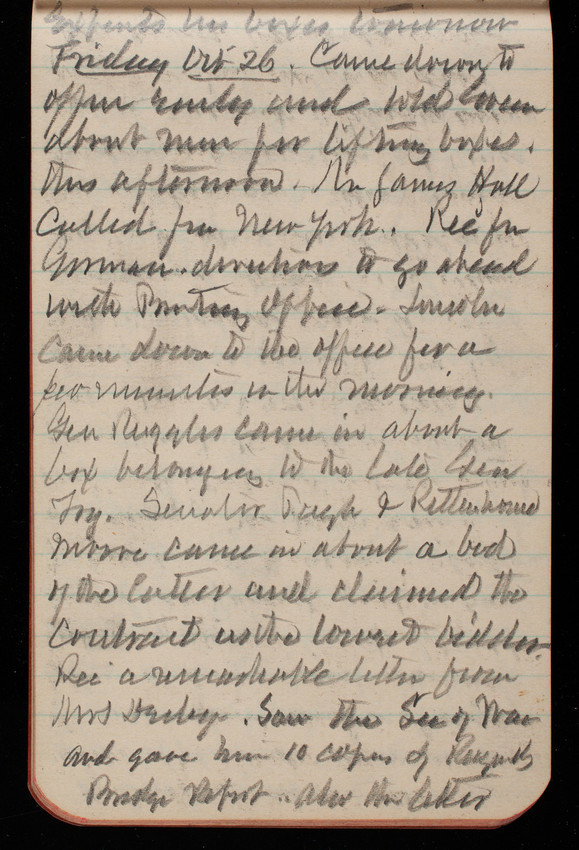 Expects his boxes tomorrow
Friday Oct 26. Came down to
office early and told Green
about men for lifting boxes.
this afternoon. Mr James Hall
Called from New York. Rec from
Gorman directions to go ahead
with Printing Office. Lincoln
came down to the office for a
few minutes in the morning.
Gen Ruggles came in about a
box belonging to the late Gen
Fry. Senator Pugh & Rittenhouse
Moore came in about a bid
of the latter and claimed the
Contract as the lowest bidder.
Rec a remarkable letter from
Mrs Derby. Saw the Sec of War
and gave him 10 copies of
Bridge Report. also the letter